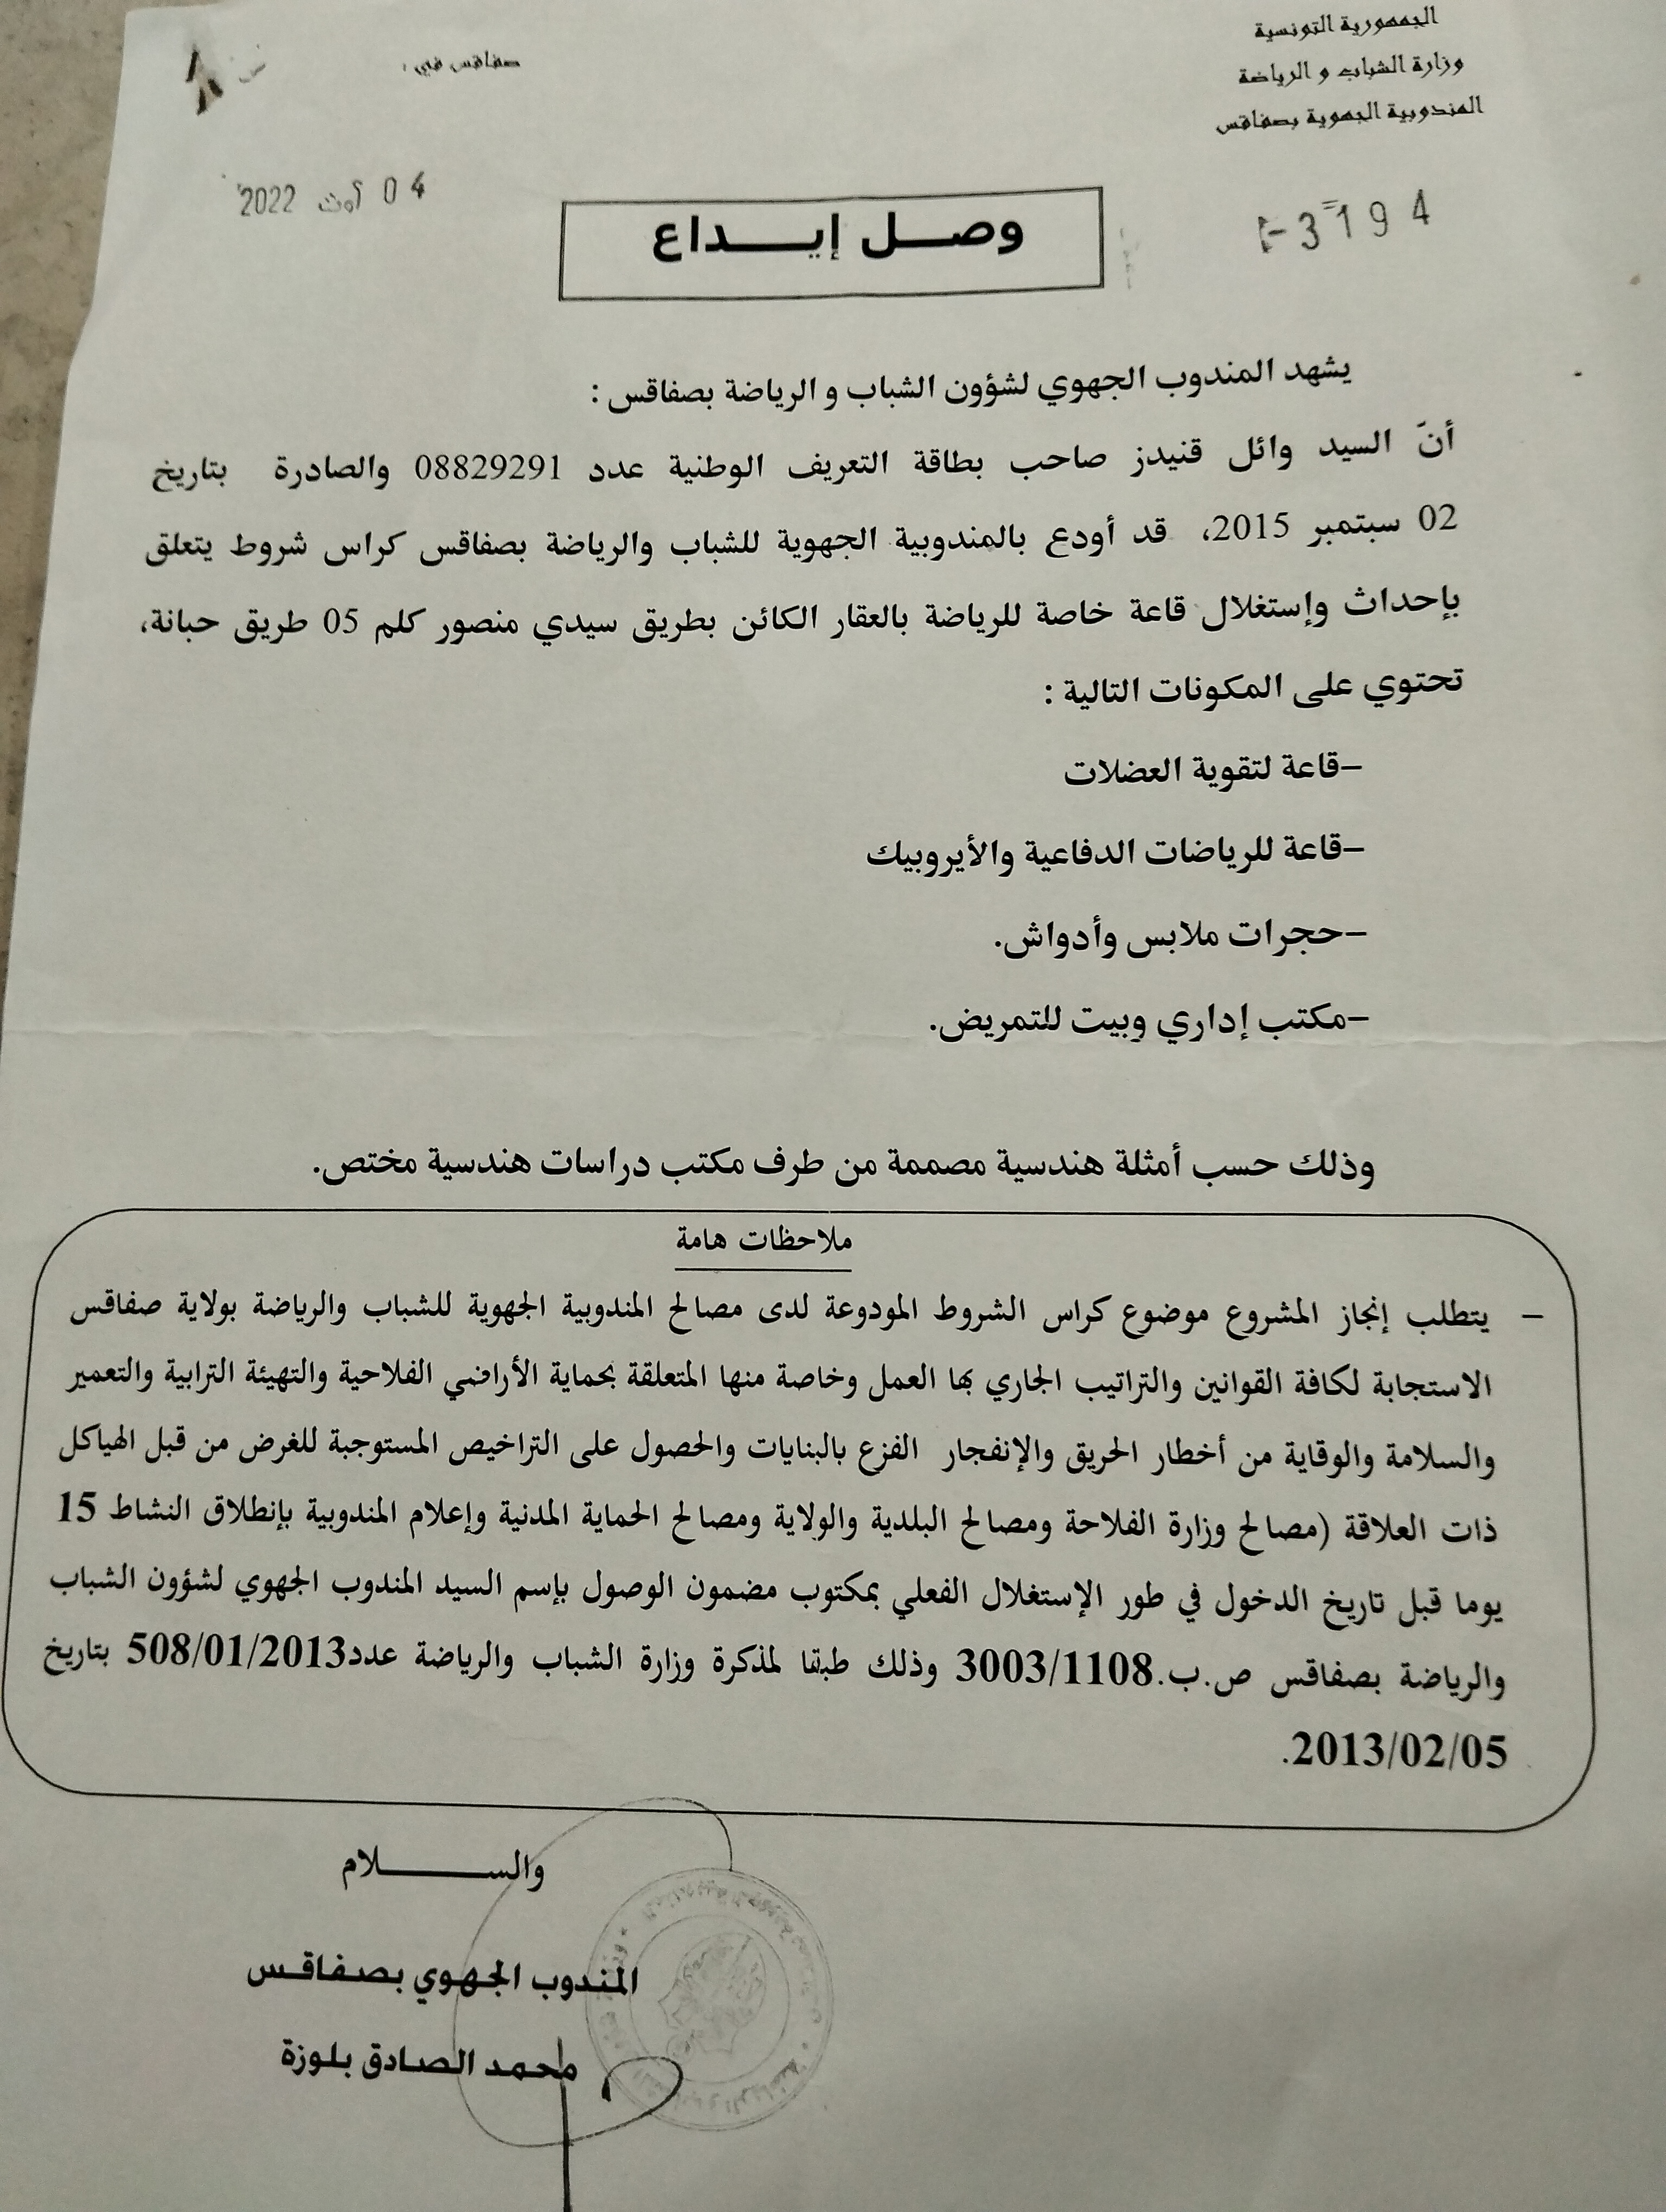 الجمهورية التونسية
وزارة الشباب و الرياضة
المندوبية الجهوية بصفاقس
صفاقس في :
04 أوت 2022
3194
وصـــل إيـــــداع
يشهد المندوب الجهوي لشؤون الشباب و الرياضة بصفاقس :
أنّ السيد وائل قنيدز صاحب بطاقة التعريف الوطنية عدد 08829291 والصادرة بتاريخ
02 سبتمبر 2015، قد أودع بالمندوبية الجهوية للشباب والرياضة بصفاقس كراس شروط يتعلق
بإحداث وإستغلال قاعة خاصة للرياضة بالعقار الكائن بطريق سيدي منصور كلم 05 طريق حبانة،
تحتوي على المكونات التالية :
–قاعة لتقوية العضلات
–قاعة للرياضات الدفاعية والأيروبيك
–حجرات ملابس وأدواش.
–مكتب إداري وبيت للتمريض.
وذلك حسب أمثلة هندسية مصممة من طرف مكتب دراسات هندسية مختص.
ملاحظات هامة
– يتطلب إنجاز المشروع موضوع كراس الشروط المودوعة لدى مصالح المندوبية الجهوية للشباب والرياضة بولاية صفاقس
الاستجابة لكافة القوانين والتراتيب الجاري بها العمل وخاصة منها المتعلقة بحماية الأراضي الفلاحية والتهيئة الترابية والتعمير
والسلامة والوقاية من أخطار الحريق والإنفجار الفزع بالبنايات والحصول على التراخيص المستوجبة للغرض من قبل الهياكل
ذات العلاقة (مصالح وزارة الفلاحة ومصالح البلدية والولاية ومصالح الحماية المدنية وإعلام المندوبية بإنطلاق النشاط 15
يوما قبل تاريخ الدخول في طور الإستغلال الفعلي بمكتوب مضمون الوصول بإسم السيد المندوب الجهوي لشؤون الشباب
والرياضة بصفاقس ص.ب.3003/1108 وذلك طبقا لمذكرة وزارة الشباب والرياضة عدد508/01/2013 بتاريخ
2013/02/05.
والســـــــــلام
المندوب الجهوي بصفاقس
محمد الصادق بلوزة